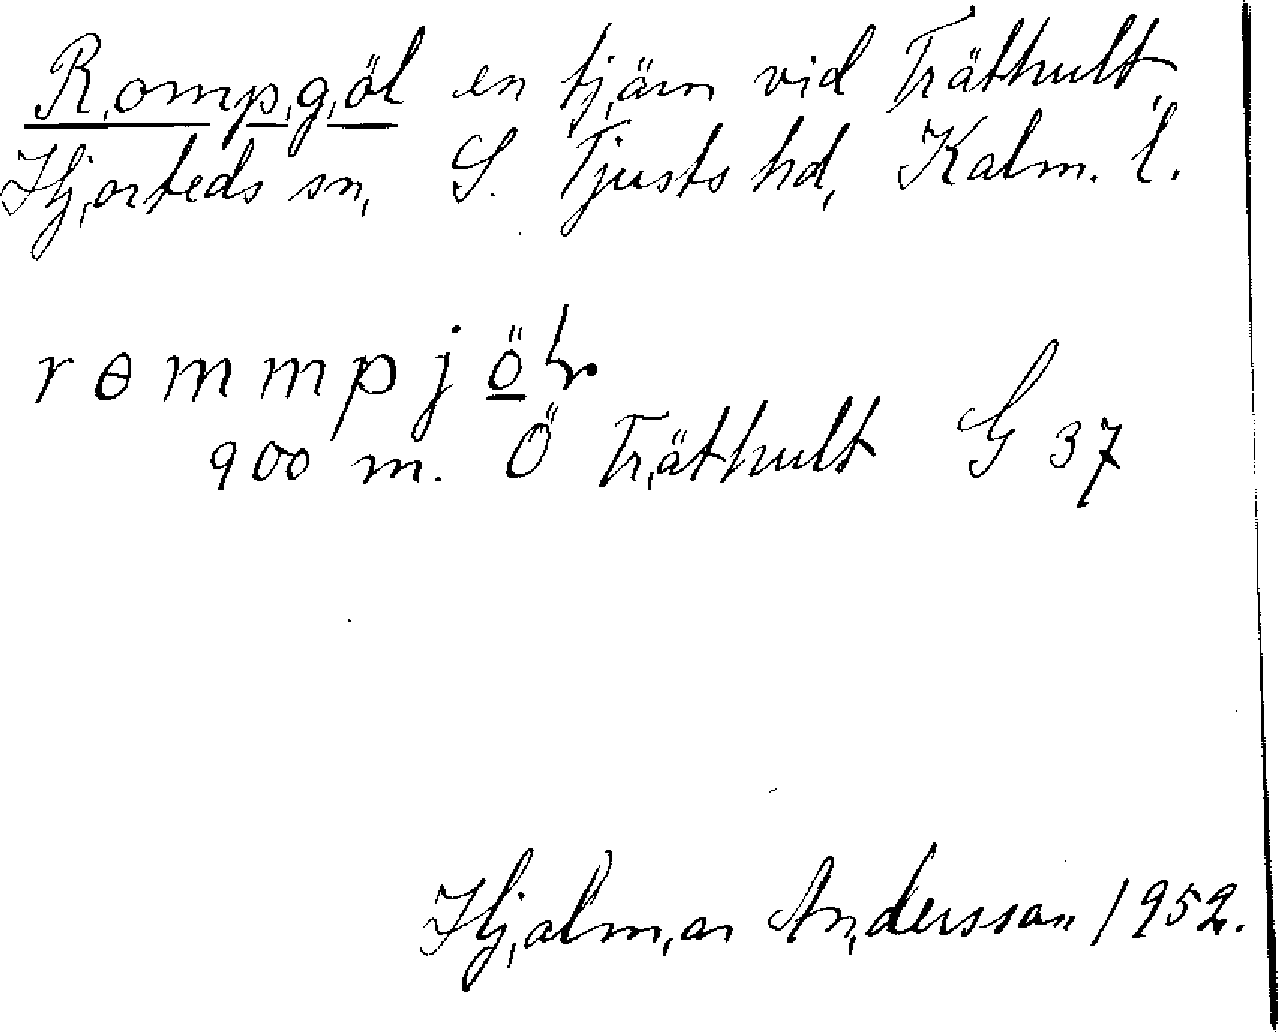 Rompgöl en tjärn vid Träthult,
Hjorteds sn, S. Tjusts hd, Kalm. l.
rɵmmpjö̲lr
900 m. Ö Träthult G 37
Hjalmar Andersson 1952.